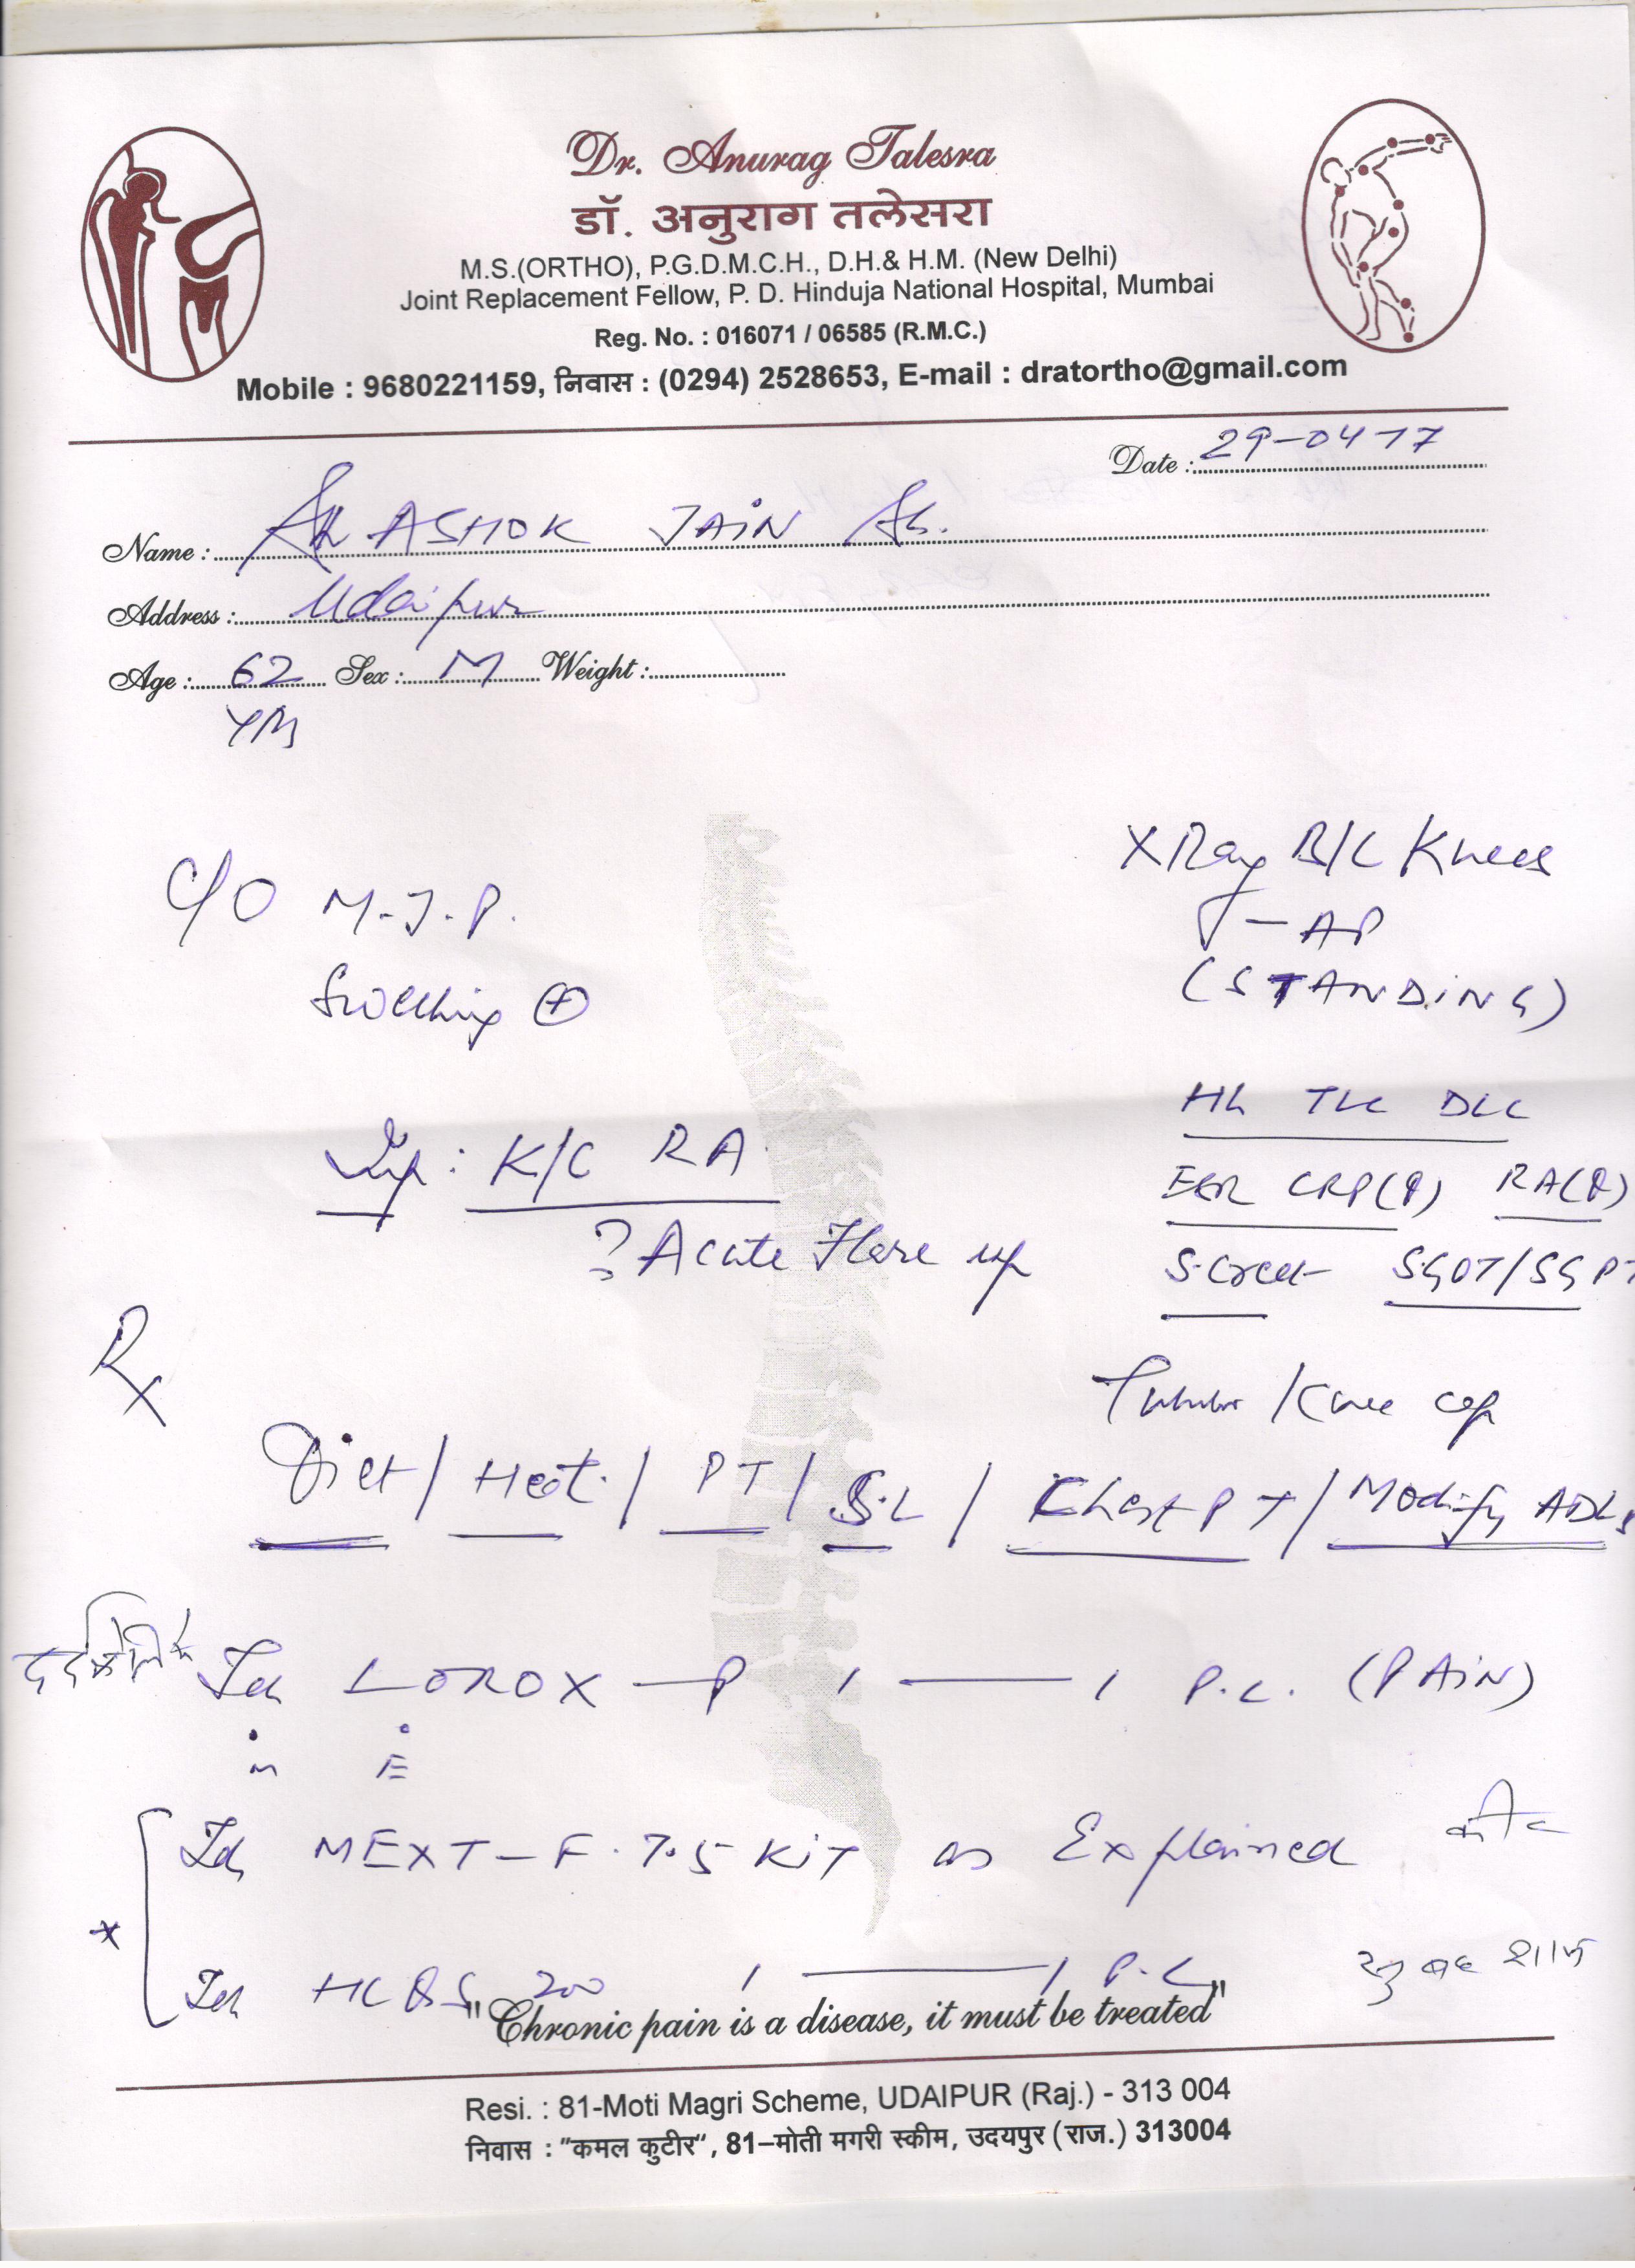 Dr. Anurag Talesra
डॉ. अनुराग तलेसरा
M.S.(ORTHO), P.G.D.M.C.H., D.H.& H.M. (New Delhi)
Joint Replacement Fellow, P. D. Hinduja National Hospital, Mumbai
Reg. No. : 016071 / 06585 (R.M.C.)
Mobile : 9680221159, निवास : (0294) 2528653, E-mail : dratortho@gmail.com
Date : 29-04-17
Name : ASHOK JAIN
Address : Udaipur
Age : 62 Sex : M Weight :
C/O M.J.P.
Swelling ⊕
X Ray B/L Knees
- AP
(STANDING)
Hb TLC DLC
Imp : K/C RA
ESR CRP(Q) RA(Q)
? Acute Flare up
S.Creat SGOT/SGPT
Rx
/Knee cap
Diet / Heat / PT / S.L / Chest PT / Modify ADLs
Tab LOROX - P 1 — 1 P.C. (PAIN)
M E
Tab MEXT - F 7.5 KIT as Explained
Tab HCQS 200 1 — 1 P.C सुबह शाम
"Chronic pain is a disease, it must be treated"
Resi. : 81-Moti Magri Scheme, UDAIPUR (Raj.) - 313 004
निवास : "कमल कुटीर", 81–मोती मगरी स्कीम, उदयपुर (राज.) 313004